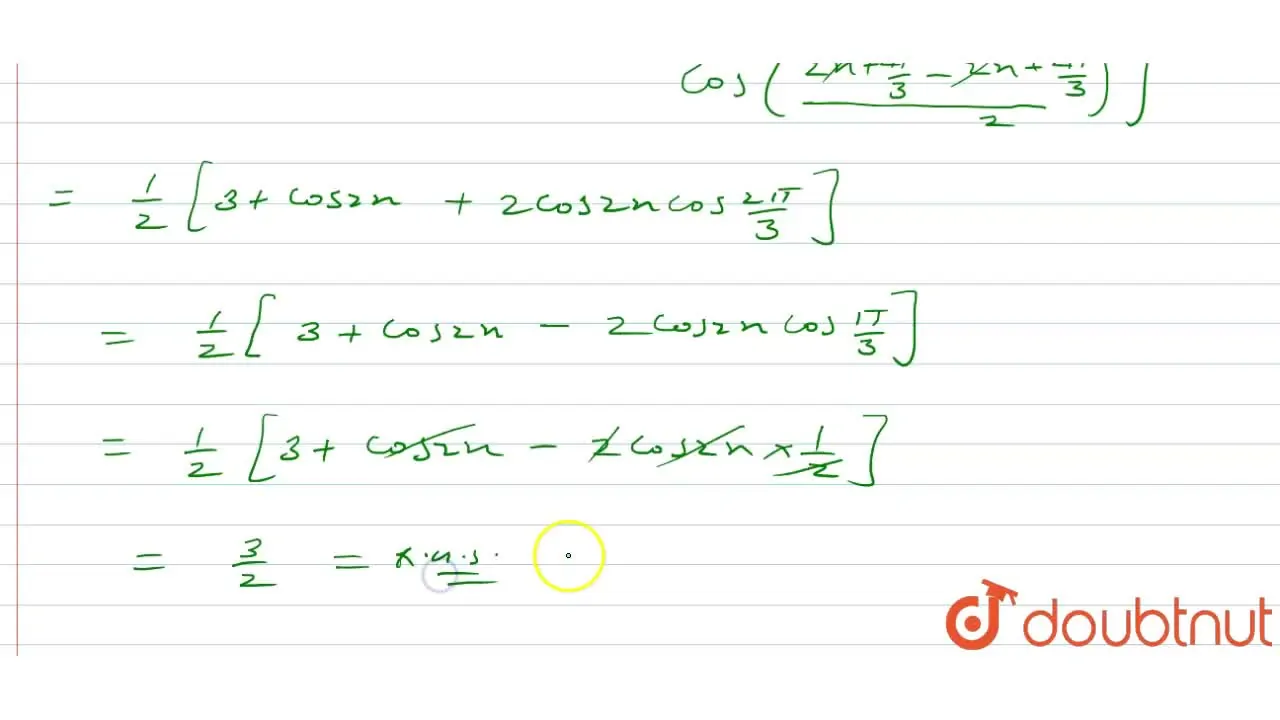 cos( (2x + 2π/3 - 2x + 2π/3) / 2 ) ]
= 1/2 [ 3 + cos2x + 2cos2x cos 2π/3 ]
= 1/2 [ 3 + cos2x - 2cos2x cos π/3 ]
= 1/2 [ 3 + cos2x - 2cos2x × 1/2 ]
= 3/2 = R.H.S.
doubtnut